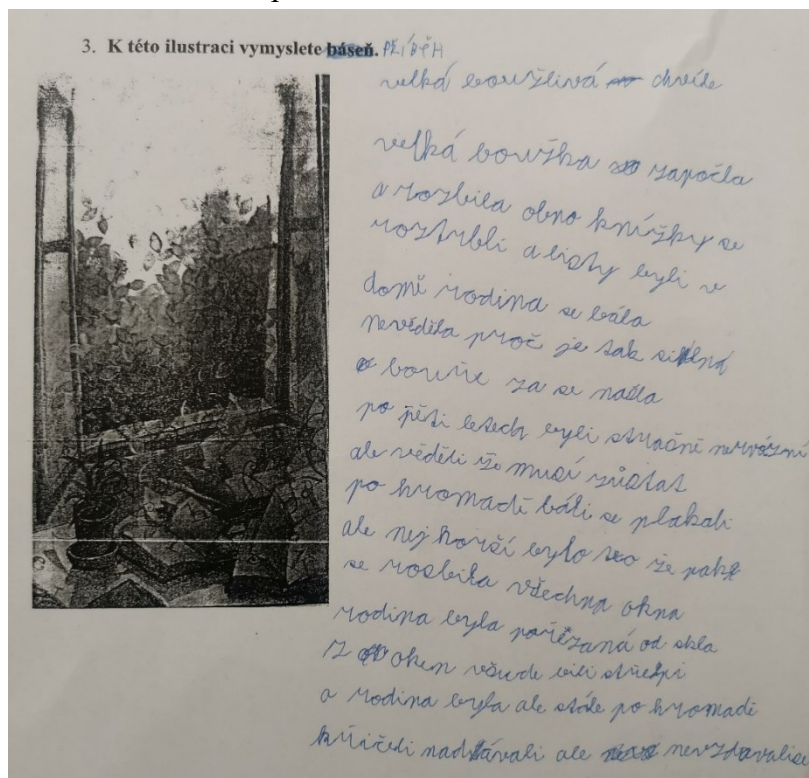 3. K této ilustraci vymyslete báseň. PŘÍBĚH
velká bouřlivá chvíle
velká bouřka započla
a rozbila okno knížky se
roztrhli a listy byli v
domě rodina se bála
nevěděla proč je tak silná
bouře za se našla
po pěti letech byli strašně nervózní
ale věděli že musí zůstat
po hromadě báli se plakali
ale nej horší bylo to že pak
se rozbila všechna okna
rodina byla pořezaná od skla
z oken všude bili střepi
a rodina byla ale stále po hromadě
křičeli nadávali ale nevzdavalise